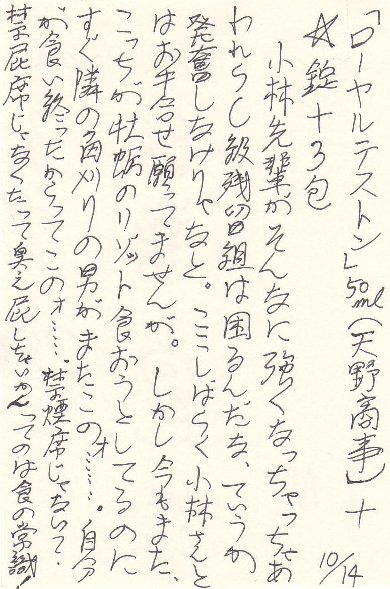 「ローヤルテストン」50ml（天野商事）＋
☆錠＋3包
10/14
小林先輩がそんなに強くなっちゃあ
われらC級残留組は困るんだな、ていうか
発奮しなけりゃなと。ここしばらく小林さんと
はお手合せ願ってませんが。しかし今もまた、
こっちが牡蛎のリゾット食おうとしてるのに
すぐ隣の角刈りの男がまたこのォ……。自分
が食い終ったからってこのォ……。禁煙席じゃないって・
禁屁席じゃなくたって臭え屁しちゃいかんってのは食の常識！